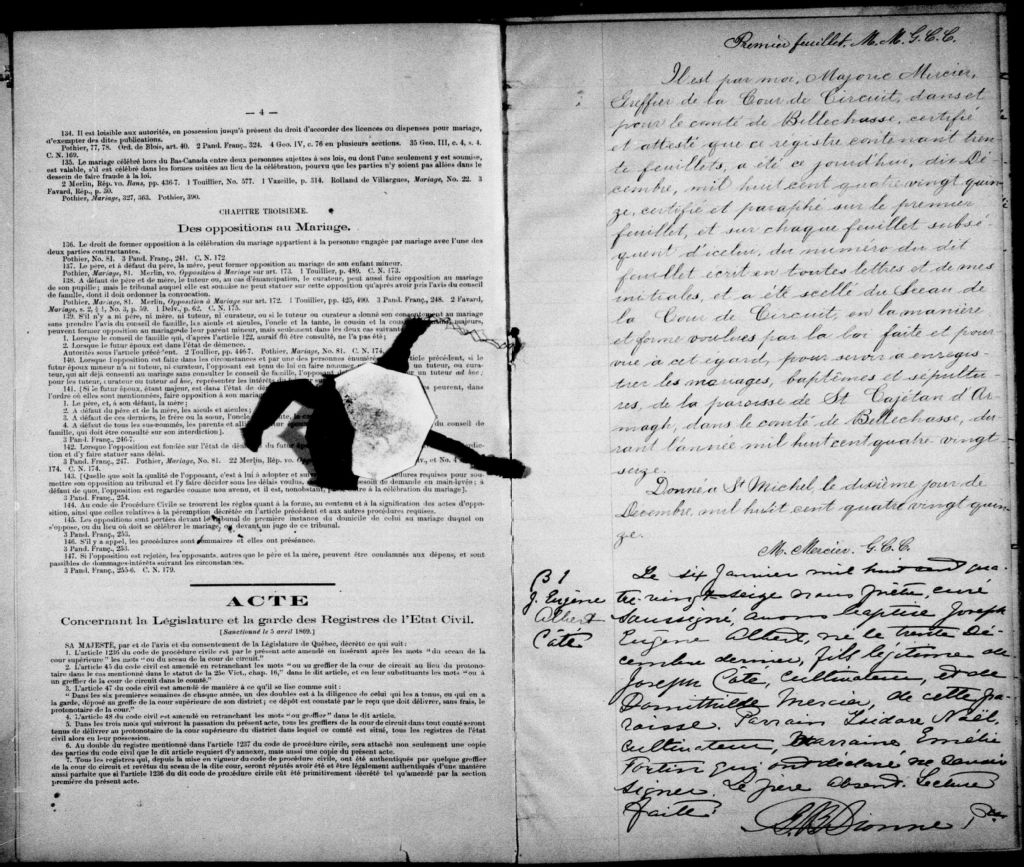 — 4 —
134. Il est loisible aux autorités, en possession jusqu'à présent du droit d'accorder des licences ou dispenses pour mariage,
d'exempter des dites publications.
Pothier, 77, 78. Ord. de Blois, art. 40. 2 Pand. Franç., 324. 4 Geo. IV, c. 76 en plusieurs sections. 35 Geo. III, c. 4, s. 4.
C. N. 169.
135. Le mariage célébré hors du Bas-Canada entre deux personnes sujettes à ses lois, ou dont l'une seulement y est soumise,
est valable, s'il est célébré dans les formes usitées au lieu de la célébration, pourvu que les parties n'y soient pas allées dans le
dessein de faire fraude à la loi.
2 Merlin, Rép. vo. Bans, pp. 436-7. 1 Touillier, No. 577. 1 Vazeille, p. 314. Rolland de Villargues, Mariage, No. 22. 3
Favard, Rép., p. 50.
Pothier, Mariage, 327, 363. Pothier, 390.
CHAPITRE TROISIEME.
Des oppositions au Mariage.
136. Le droit de former opposition à la célébration du mariage appartient à la personne engagée par mariage avec l'une des
deux parties contractantes.
Pothier, No. 81. 3 Pand. Franç., 241. C. N. 172.
137. Le père, et à défaut du père, la mère, peut former opposition au mariage de son enfant mineur.
Pothier, Mariage, 81. Merlin, vo. Opposition à Mariage sur art. 173. 1 Touillier, p. 489. C. N. 173.
138. A défaut de père et de mère, le tuteur ou, au cas d'émancipation, le curateur, peut aussi faire opposition au mariage
de son pupille; mais le tribunal auquel elle est soumise ne peut statuer sur cette opposition qu'après avoir pris l'avis du conseil
de famille, dont il doit ordonner la convocation.
Pothier, Mariage, 81. Merlin, Opposition à Mariage sur art. 172. 1 Touillier, pp. 425, 490. 3 Pand. Franç., 248. 2 Favard,
Mariage, s. 2, § 1, No. 3, p. 59. 1 Delv., p. 62. C. N. 175.
139. S'il n'y a ni père, ni mère, ni tuteur, ni curateur, ou si le tuteur ou curateur a donné son consentement au mariage
sans prendre l'avis du conseil de famille, les aïeuls et aïeules, l'oncle et la tante, le cousin et la cousine germains, majeurs,
peuvent former opposition au mariage de leur parent mineur, mais seulement dans les deux cas suivants
1. Lorsque le conseil de famille qui, d'après l'article 122, aurait dû être consulté, ne l'a pas été;
2. Lorsque le futur époux est dans l'état de démence.
Autorités sous l'article précédent. 2 Touillier, pp. 446-7. Pothier, Mariage, No. 81. C. N. 174.
140. Lorsque l'opposition est faite dans les circonstances et par une des personnes article précédent, si le
futur époux mineur n'a ni tuteur, ni curateur, l'opposant est tenu de lui en faire nommer un tuteur, ou cura-
teur, qui ait déjà consenti au mariage sans consulter le conseil de famille, l'opposant un tuteur ad hoc;
pour les tuteur, curateur ou tuteur ad hoc, représenter les intérêts
141. [Si le futur époux, étant majeur, est dans l'état de peuvent, dans
l'ordre où elles sont mentionnées, faire opposition à son mariage
1. Le père, et, à son défaut, la mère;
2. A défaut du père et de la mère, les aïeuls et aïeules;
3. A défaut de ces derniers, le frère ou la sœur, l'oncle
4. A défaut de tous les sus-nommés, les parents et conseil de
famille, qui doit être consulté sur son interdiction].
3 Pand. Franç., 246-7.
142. Lorsque l'opposition est fondée sur l'état de du futur
et d'y faire statuer sans délai.
3 Pand. Franç., 247. Pothier, Mariage, No. 81. 22 Merlin, Rép. vo. et No. 4
174. C. N. 174.
143. [Quelle que soit la qualité de l'opposant, c'est à lui à adopter et requises pour sou-
mettre son opposition au tribunal et l'y faire décider sous les délais voulus, besoin de demande en main-levée; à
défaut de quoi, l'opposition est regardée comme non avenu, et il est, nonobstant, à la célébration du mariage].
3 Pand. Franç., 254.
144. Au code de Procédure Civile se trouvent les règles quant à la forme, au contenu et à la signification des actes d'oppo-
sition, ainsi que celles relatives à la péremption décrétée en l'article précédent et aux autres procédures requises.
145. Les oppositions sont portées devant le tribunal de première instance du domicile de celui au mariage duquel on
s'oppose, ou du lieu où doit se célébrer le mariage, ou devant un juge de ce tribunal.
3 Pand. Franç., 253.
146. S'il y a appel, les procédures sont sommaires et elles ont préséance.
3 Pand. Franç., 253.
147. Si l'opposition est rejetée, les opposants, autres que le père et la mère, peuvent être condamnés aux dépens, et sont
passibles de dommages-intérêts suivant les circonstances.
3 Pand. Franç., 255-6. C. N. 179.
ACTE
Concernant la Législature et la garde des Registres de l'Etat Civil.
[Sanctionné le 5 avril 1869.]
SA MAJESTE, par et de l'avis et du consentement de la Législature de Québec, décrète ce qui suit:
1. L'article 1236 du code de procédure civile est par le présent acte amendé en insérant après les mots "du sceau de la
cour supérieure" les mots "ou du sceau de la cour de circuit."
2. L'article 45 du code civil est amendé en retranchant les mots "ou au greffier de la cour de circuit au lieu du protono-
taire dans le cas mentionné dans le statut de la 25e Vict., chap. 16," dans le dit article, et en leur substituants les mots "ou à
un greffier de la cour de circuit dans le comté."
3. L'article 47 du code civil est amendé de manière à ce qu'il se lise comme suit:
"Dans les six premières semaines de chaque année, un des doubles est à la diligence de celui qui les a tenus, ou qui en a
la garde, déposé au greffe de la cour supérieure de son district; ce dépôt est constaté par le reçu que doit délivrer, sans frais, le
protonotaire de la cour."
4. L'article 48 du code civil est amendé en retranchant les mots "ou greffier" dans le dit article.
5. Dans les trois mois qui suivront la passation du présent acte, tous les greffiers de la cour de circuit dans tout comté seront
tenus de délivrer au protonotaire de la cour supérieure du district dans lequel ce comté est situé, tous les registres de l'état
civil alors en leur possession.
6. Au double du registre mentionné dans l'article 1237 du code de procédure civile, sera attaché non seulement une copie
des parties du code civil que le dit article requiert d'y annexer, mais aussi une copie du présent acte.
7. Tous les registres qui, depuis la mise en vigueur du code de procédure civile, ont été authentiqués par quelque greffier
de la cour de circuit et revêtus du sceau de la dite cour, seront réputés avoir été et être légalement authentiqués d'une manière
aussi parfaite que si l'article 1236 du dit code de procédure civile eût été primitivement décrété tel qu'amendé par la section
première du présent acte.
Premier feuillet. M. M. G. C. C.
Il est par moi, Majoric Mercier,
Greffier de la Cour de Circuit, dans et
pour le comté de Bellechasse, certifié
et attesté que ce registre contenant tren
te feuillets, a été ce jourd'hui, dix Dé-
cembre, mil huit cent quatre vingt quin-
ze, certifié et paraphé sur le premier
feuillet, et sur chaque feuillet subsé-
quent d'icelui, du numéro du dit
feuillet écrit en toutes lettres et de mes
initiales, et a été scellé du Sceau de
la Cour de Circuit, en la manière
et forme voulues par la loi faite et pour
vue à cet égard, pour servir à enregis-
trer les mariages, baptêmes et sépultu-
res, de la paroisse de St Cajétan d'Ar-
magh, dans le comté de Bellechasse, du-
rant l'année mil huit cent quatre vingt
seize.
Donné à St Michel le dixième jour de
Décembre, mil huit cent quatre vingt quin-
ze.
M. Mercier. G. C. C.
B 1
J. Eugène
Albert
Côté
Le six Janvier mil huit cent qua-
tre-vingt-seize nous Prêtre, curé
soussigné, avons baptisé Joseph
Eugène Albert, né le trente Dé-
cembre dernier, fils légitime de
Joseph Côté, Cultivateur, et de
Domithilde Mercier, de cette pa-
roisse. Parrain Isidore Noël,
cultivateur, Marraine, Emélie
Fortin qui ont déclaré ne savoir
signer. Le père absent. Lecture
faite.
Dionne Ptre